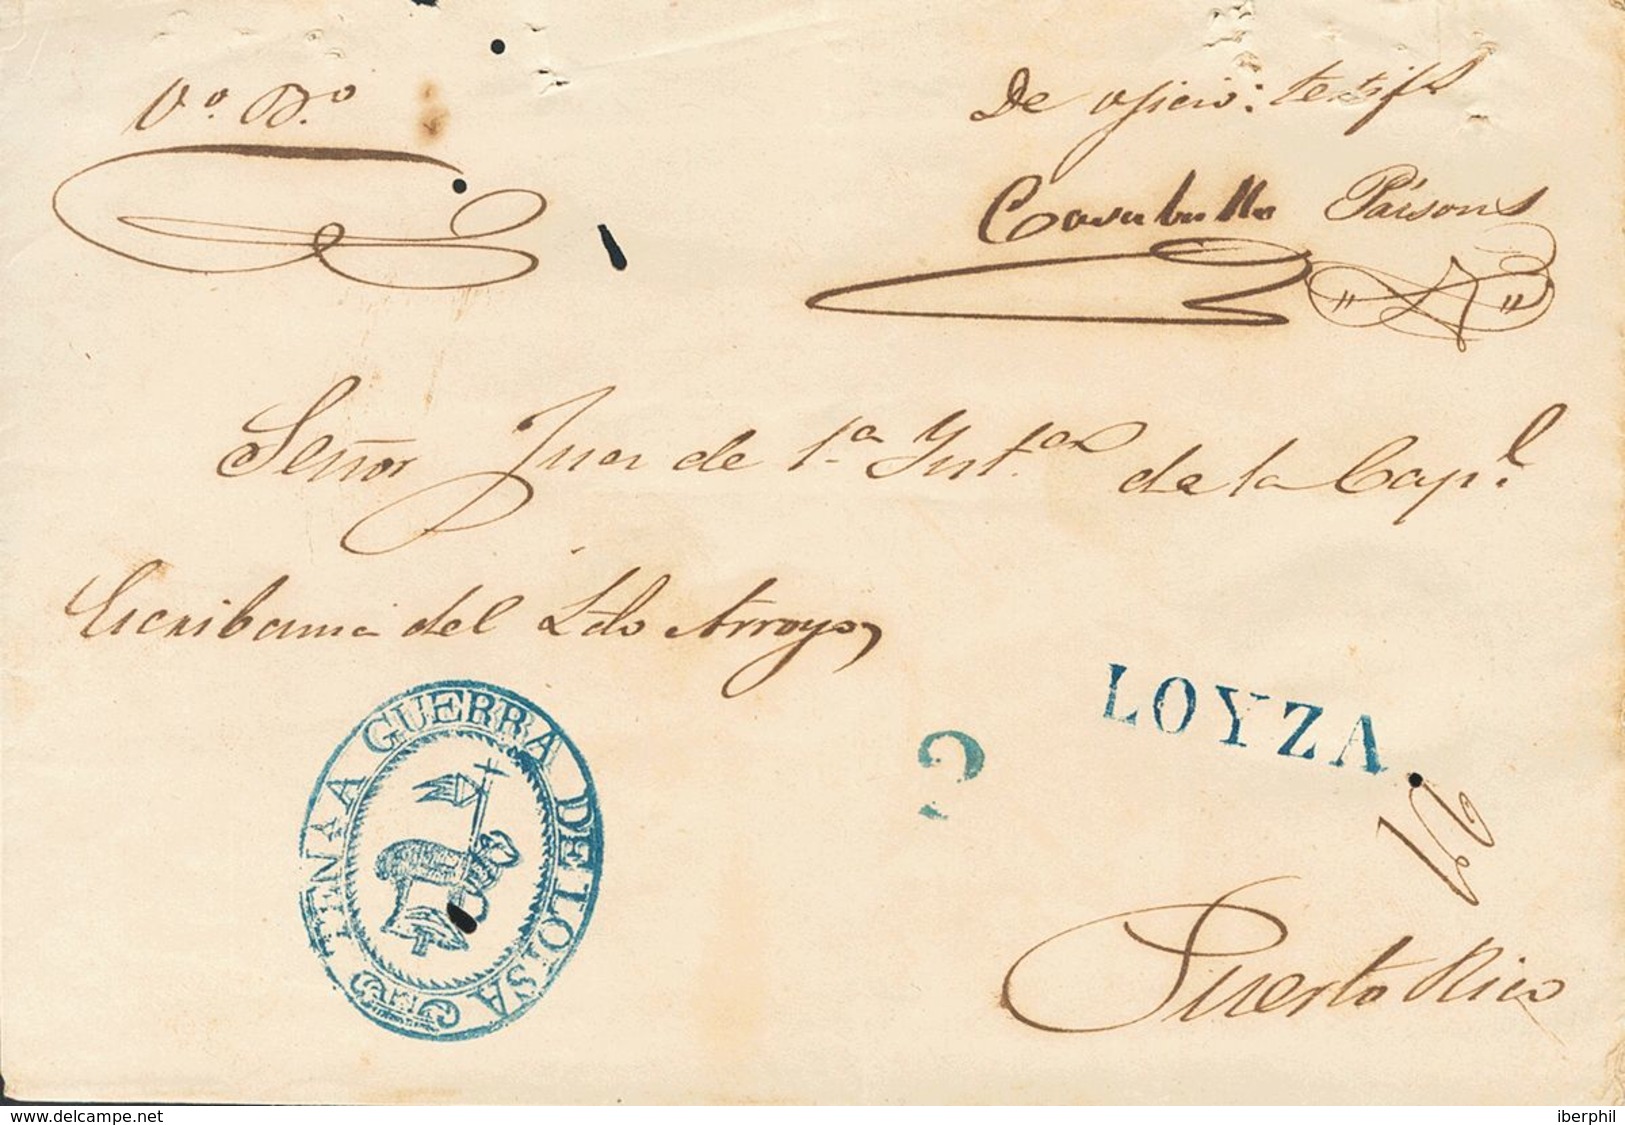 Vo. Bo.
De oficio: testifl
Casabulla Paisons
Señor Juez de 1.a Ynst.a de la Cap.l
Escribania del Ldo Arroyo,
TENA A GUERRA DE LOISA
LOYZA.
2
12
Puerto Rico
www.delcampe.net
iberphil